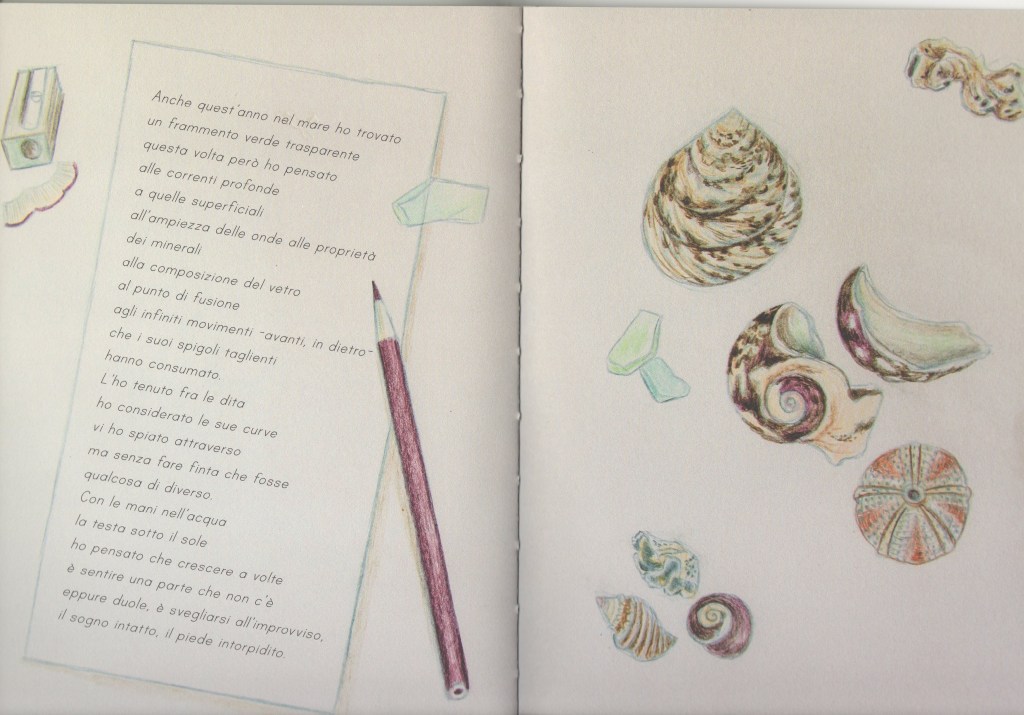 Anche quest'anno nel mare ho trovato
un frammento verde trasparente
questa volta però ho pensato
alle correnti profonde
a quelle superficiali
all'ampiezza delle onde alle proprietà
dei minerali
alla composizione del vetro
al punto di fusione
agli infiniti movimenti -avanti, in dietro-
che i suoi spigoli taglienti
hanno consumato.
L'ho tenuto fra le dita
ho considerato le sue curve
vi ho spiato attraverso
ma senza fare finta che fosse
qualcosa di diverso.
Con le mani nell'acqua
la testa sotto il sole
ho pensato che crescere a volte
è sentire una parte che non c'è
eppure duole, è svegliarsi all'improvviso,
il sogno intatto, il piede intorpidito.